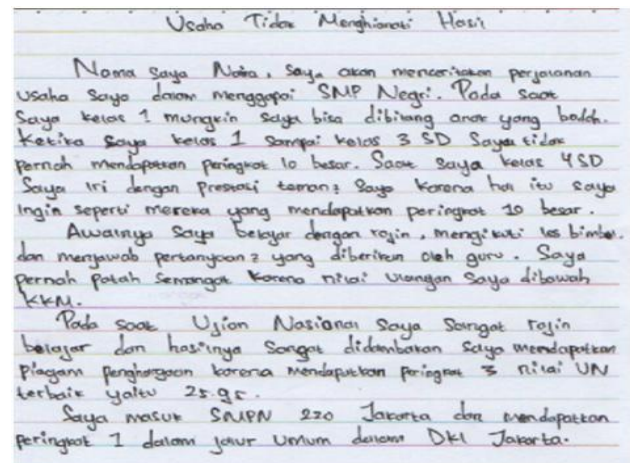 Usaha Tidak Menghianati Hasil
Nama saya Naira, saya akan menceritakan perjalanan
usaha saya dalam menggapai SMP Negri. Pada saat
saya kelas 1 mungkin saya bisa dibilang anak yang bodoh.
Ketika saya kelas 1 sampai kelas 3 SD Saya tidak
pernah mendapatkan peringkat 10 besar. Saat saya kelas 4 SD
Saya iri dengan prestasi teman2 saya karena hal itu saya
ingin seperti mereka yang mendapatkan peringkat 10 besar.
Awalnya saya belajar dengan rajin, mengikuti les bimbel.
dan menjawab pertanyaan2 yang diberikan oleh guru. Saya
pernah patah semangat karena nilai ulangan saya dibawah
KKM.
Pada saat Ujian Nasional saya sangat rajin
belajar dan hasilnya sangat didambakan saya mendapatkan
piagam penghargaan karena mendapatkan peringkat 3 nilai UN
terbaik yaitu 25.95.
Saya masuk SMPN 220 Jakarta dan mendapatkan
peringkat 1 dalam jalur umum dalam DKI Jakarta.